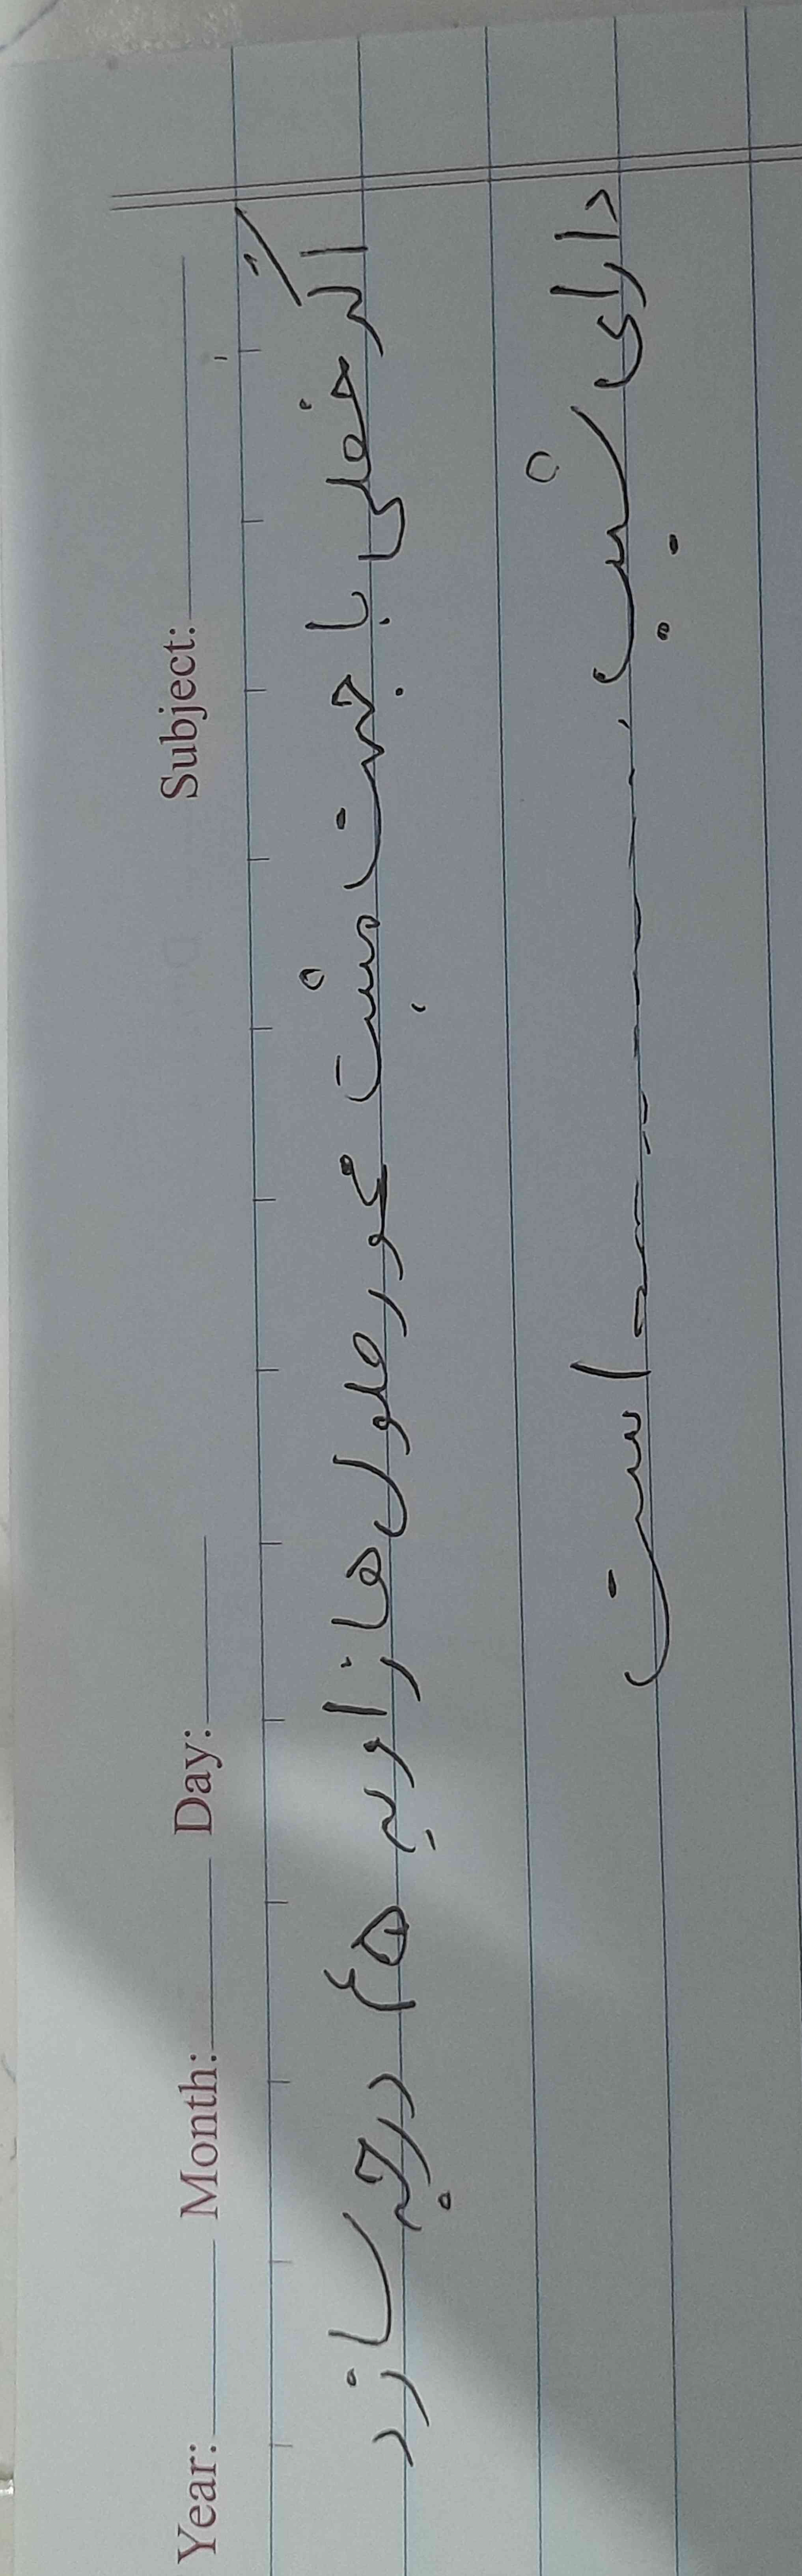 Year: Month: Day: Subject:
اگر خطی با جهت مثبت محور طول ها زاویه ۴۵ درجه سازد
دارای شیب است